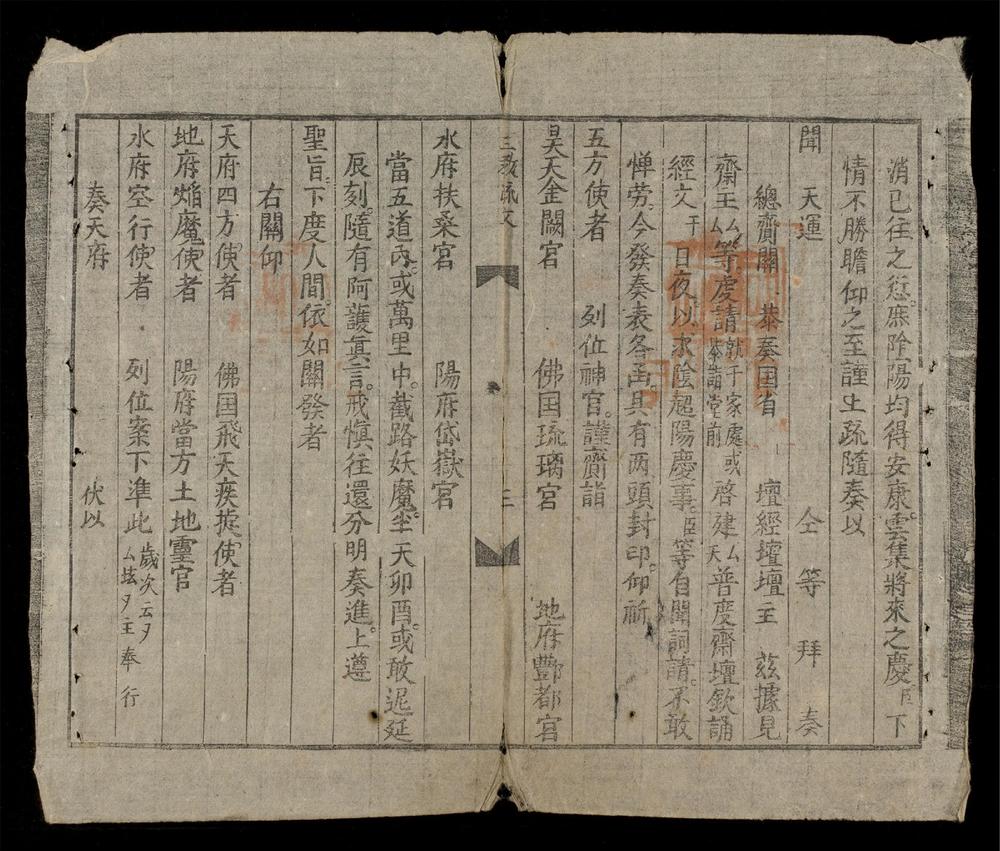 消已往之愆。庶陰陽均得安康。雲集將來之慶臣下
情不勝瞻仰之至謹上疏隨奏以
聞 天運 仝 等 拜 奏
總賫關 恭奏国省 壇經壇壇主 茲據見
齋主厶厶等。虔請就于家處或恭請堂前啓建厶天普度齋壇欽誦
經文于日夜。以求陰超陽慶事。臣等自聞詞請。不敢
憚劳。今發奏表各函。具有两頭封印。仰祈
五方使者 列位神官。謹賫詣
昊天金闕宮 佛国琉璃宮 地府酆都宮
三教疏文 三
水府扶桑宮 陽府岱嶽宮
當五道內。或萬里中。截路妖魔。坐天卯酉。或敢迟延
辰刻。隨有阿護真言。戒慎往還分明奏進。上遵
聖旨。下度人間。依如關發者
右關仰
天府四方使者 佛国飛天疾捷使者
地府焰魔使者 陽府當方土地靈官
水府空行使者 列位案下準此歲次云夕厶玆夕主奉行
奏天府 伏以